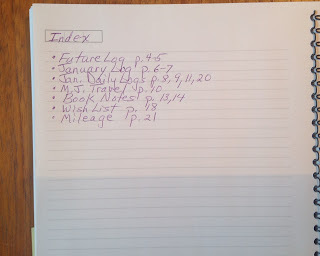 Index
• Future Log p. 4-5
• January Log p. 6-7
• Jan. Daily Logs p. 8, 9, 11, 20
• M.J. Travel p. 10
• Book Notes p. 13, 14
• Wish List p. 18
• Mileage p. 21